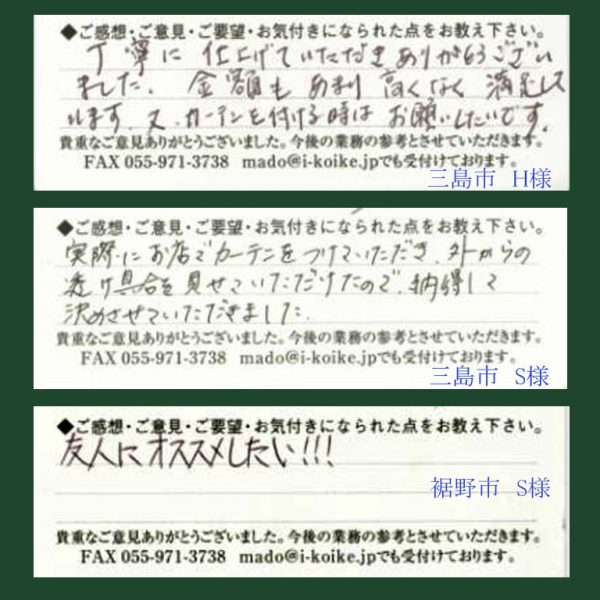 ◆ご感想・ご意見・ご要望・お気付きになられた点をお教え下さい。
丁寧に仕上げていただきありがとうござい
ました。金額もあまり高くなく満足して
います。又、カーテンを付ける時はお願いしたいです。
貴重なご意見ありがとうございました。今後の業務の参考とさせていただきます。
FAX 055-971-3738 mado@i-koike.jpでも受付けております。
三島市 H様
◆ご感想・ご意見・ご要望・お気付きになられた点をお教え下さい。
実際にお店でカーテンをつけていただき、外からの
透け具合を見せていただけたので、納得して
決めさせていただきました。
貴重なご意見ありがとうございました。今後の業務の参考とさせていただきます。
FAX 055-971-3738 mado@i-koike.jpでも受付けております。
三島市 S様
◆ご感想・ご意見・ご要望・お気付きになられた点をお教え下さい。
友人にオススメしたい!!!
裾野市 S様
貴重なご意見ありがとうございました。今後の業務の参考とさせていただきます。
FAX 055-971-3738 mado@i-koike.jpでも受付けております。